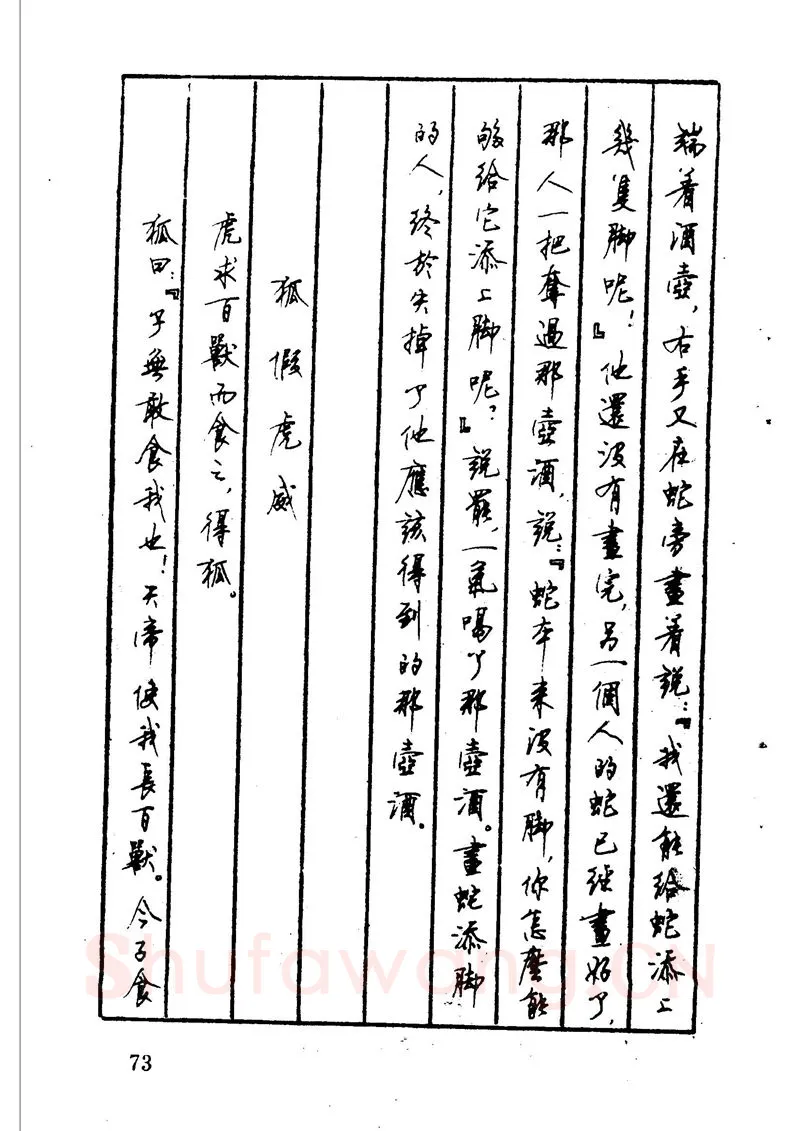 端着酒壺，右手又在蛇旁畫着說：『我還能給蛇添上
幾隻脚呢！』他還沒有畫完，另一個人的蛇已經畫好了，
那人一把奪過那壺酒，說：『蛇本来沒有脚，你怎麼能
够給它添上脚呢？』說罷，一氣喝了那壺酒。畫蛇添脚
的人，終於失掉了他應該得到的那壺酒。
狐假虎威
虎求百獸而食之，得狐。
狐曰：『子無敢食我也！天帝使我長百獸。今子食
Shufawang.CN
73